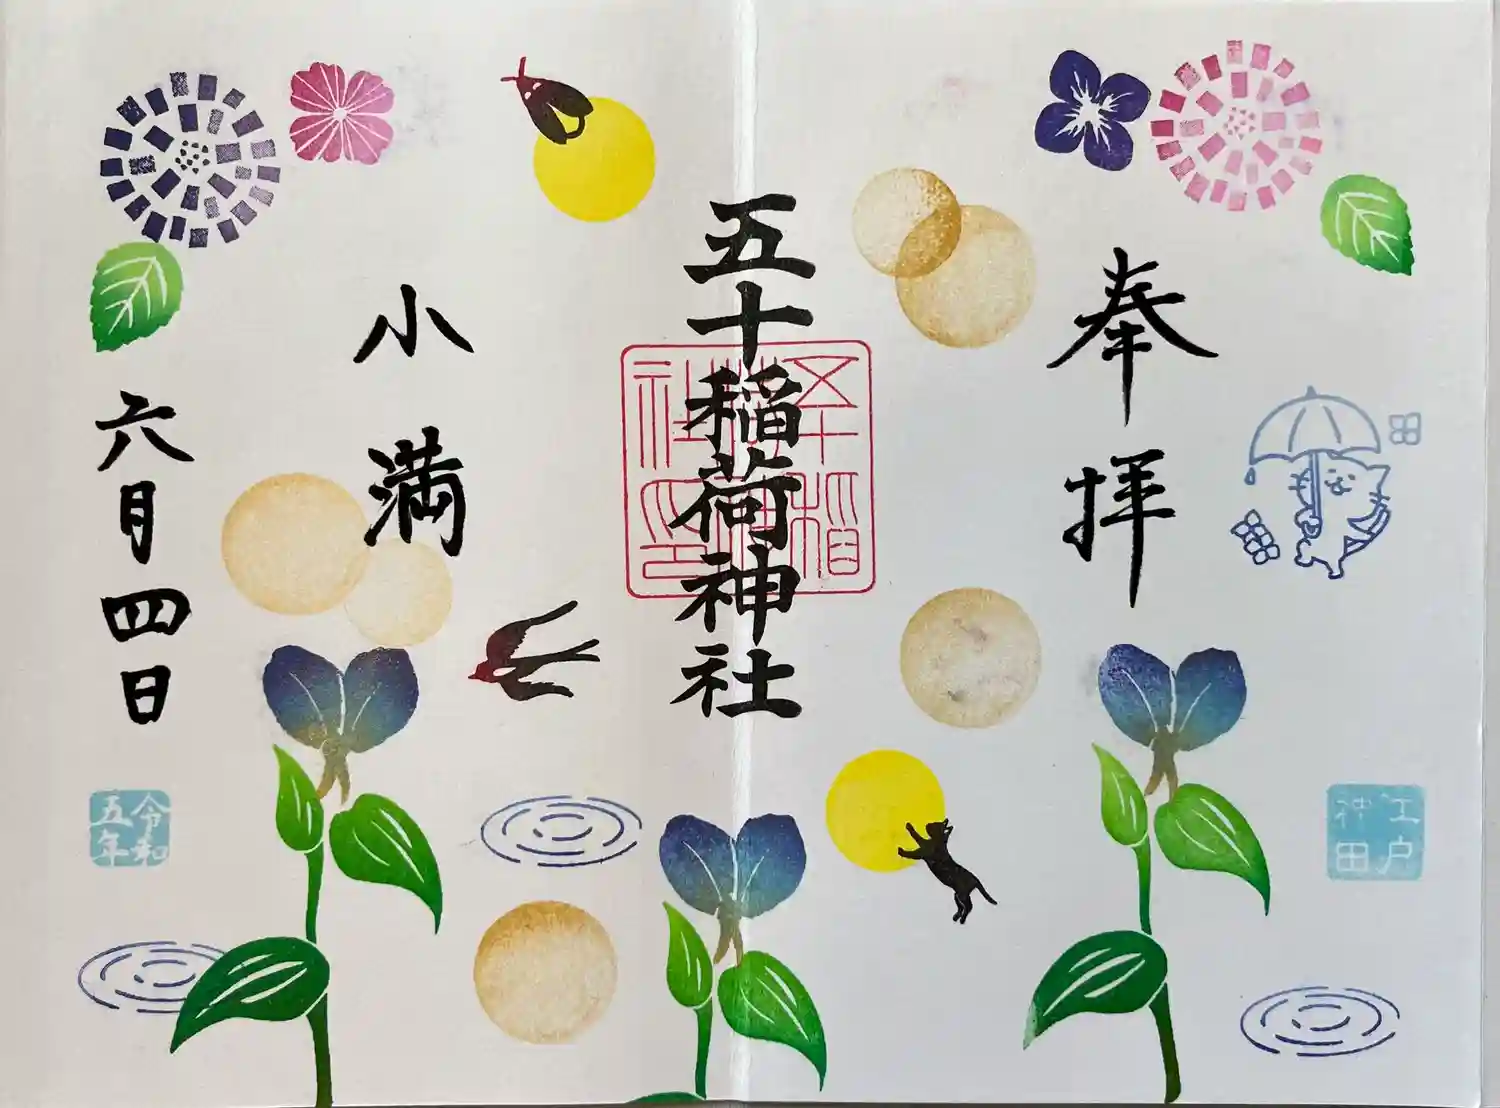 奉拝
江戸
神田
五十稲荷神社
五十稲
社印
小満
六月四日
令和
五年